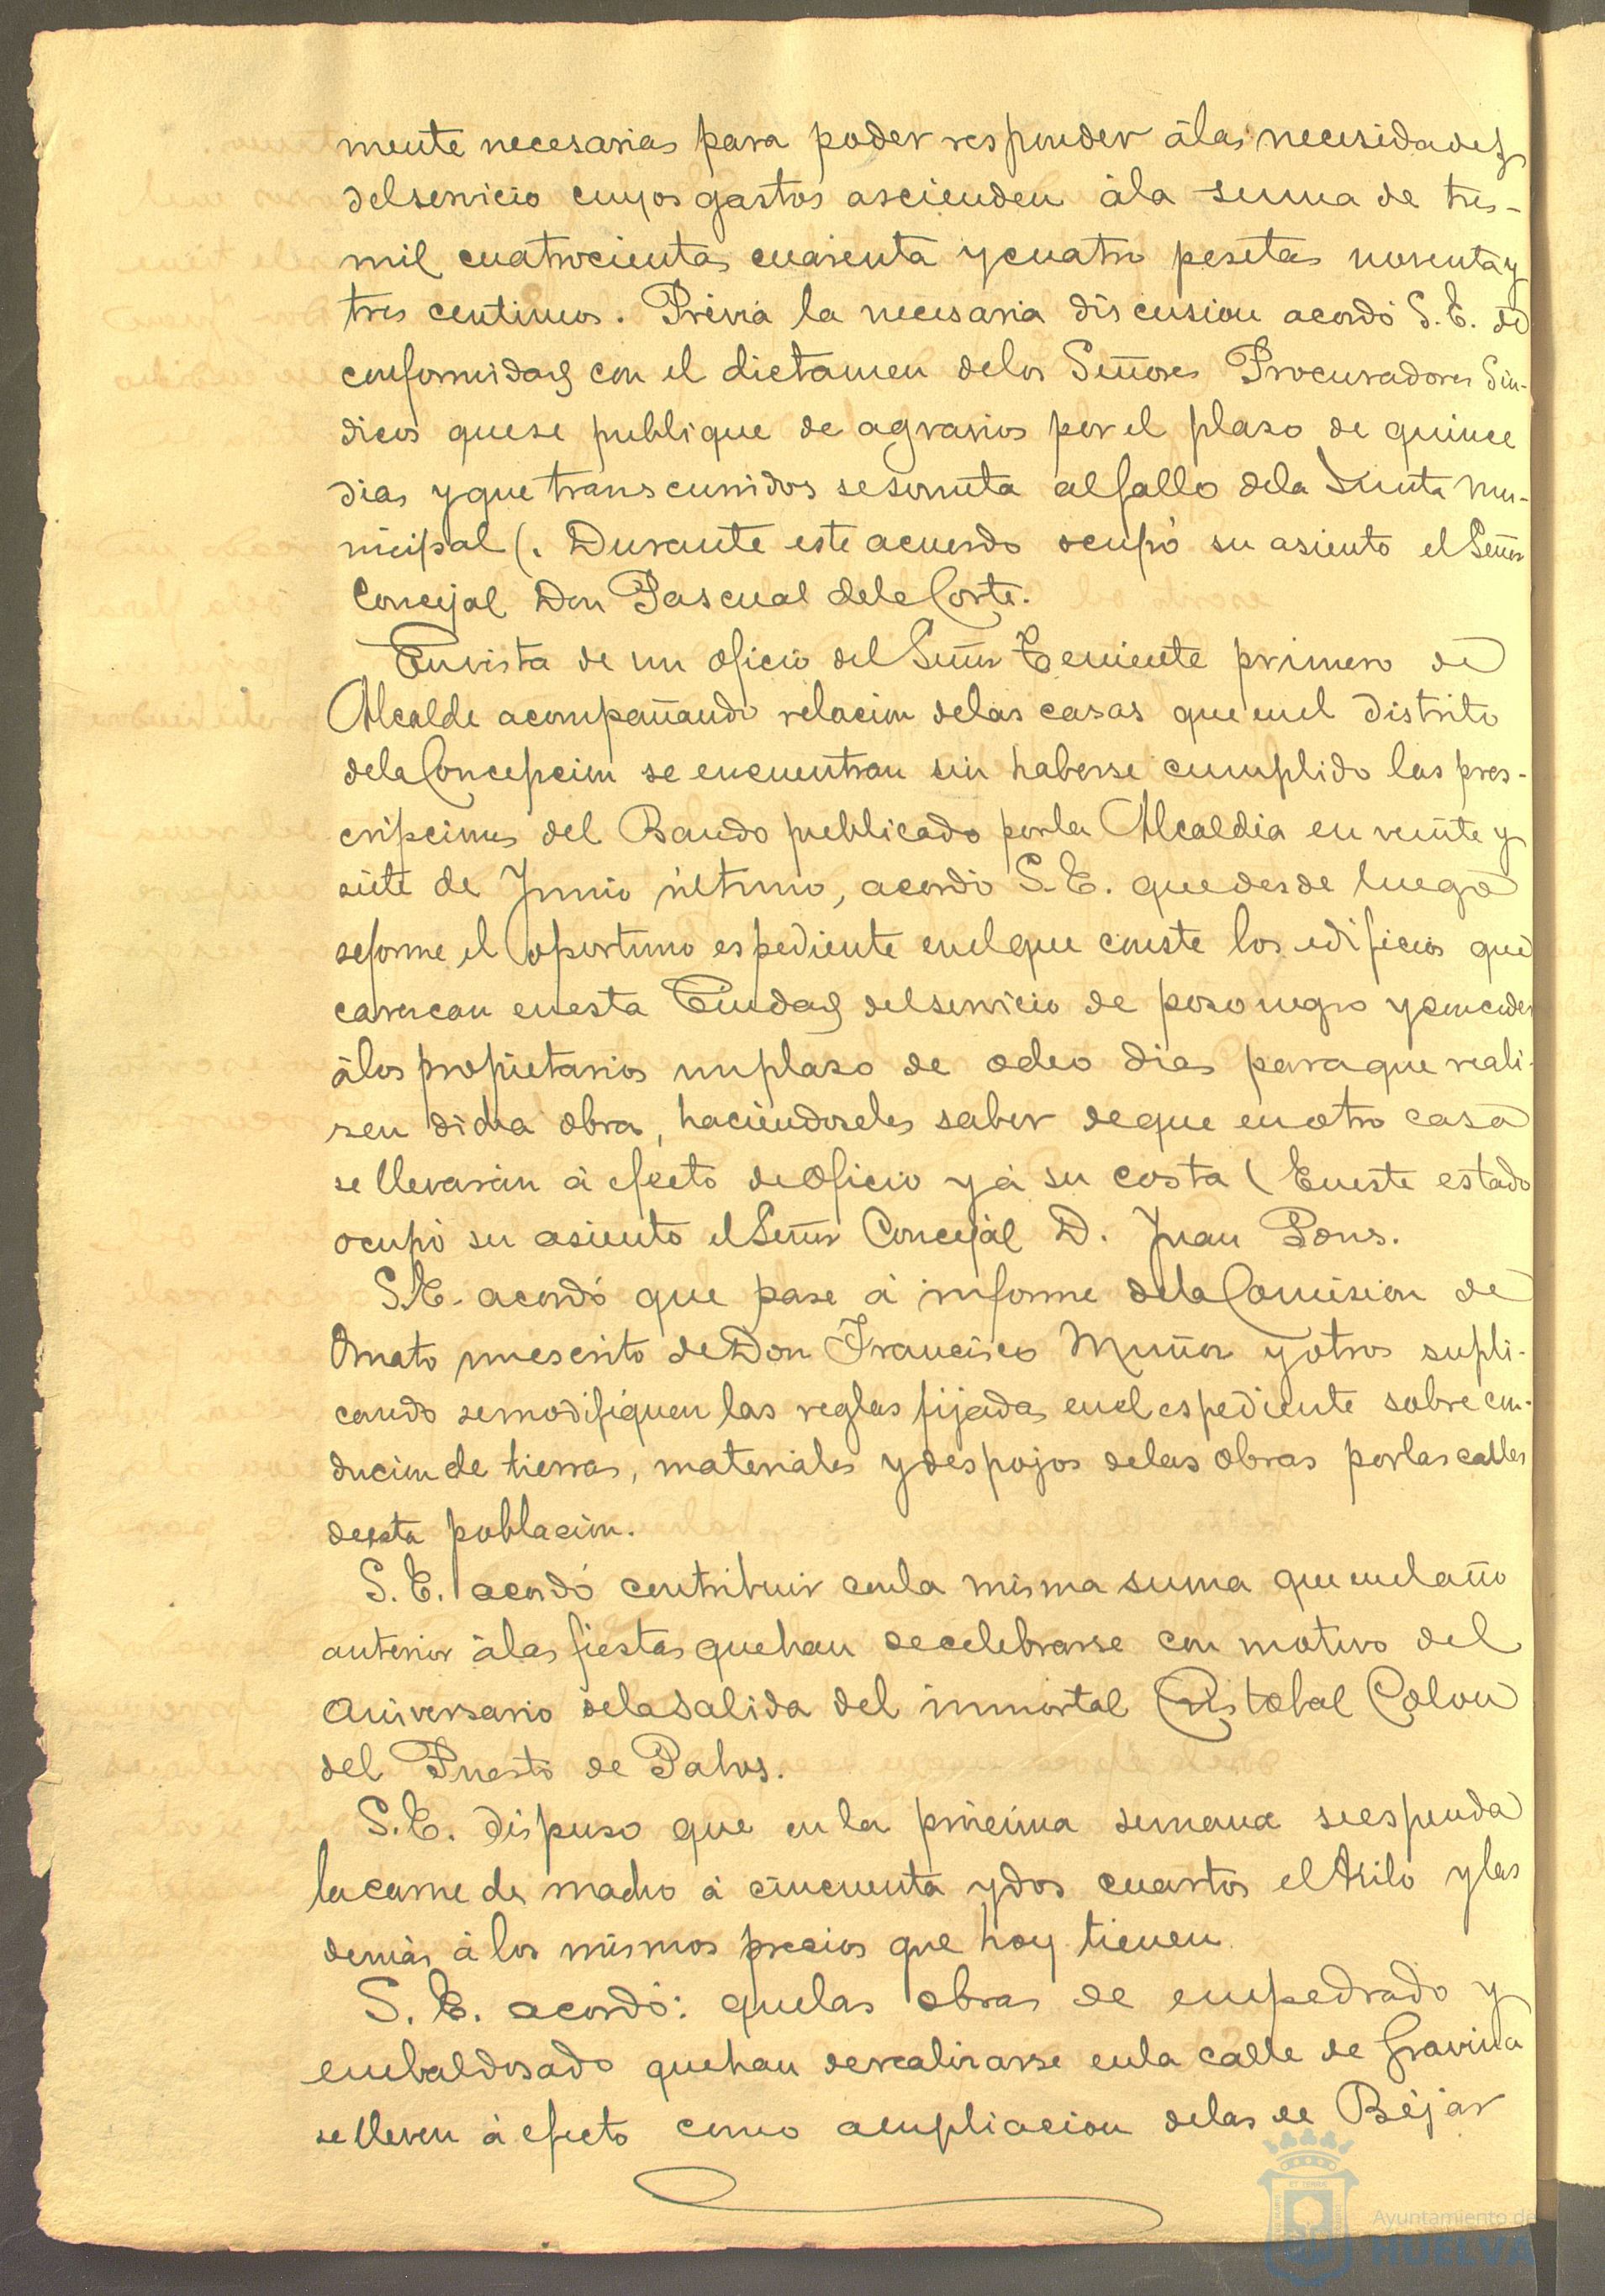 mente necesarias para poder responder á las necesidades
del servicio cuyos gastos ascienden á la suma de tres-
mil cuatrocientas cuarenta y cuatro pesetas noventa y
tres centimos. Prévia la necesaria discusion acordó S. E. de
conformidad con el dictamen de los Señores Procuradores Sin-
dicos que se publique de agravios por el plaso de quince
dias y que transcurridos se someta al fallo de la Junta Mu-
nicipal (. Durante este acuerdo ocupó su asiento el Señor
Concejal Don Pascual de la Corte.
En vista de un oficio del Señor Teniente primero de
Alcalde acompañando relacion de las casas que en el distrito
de la Concepcion se encuentran sin haberse cumplido las pres-
cripciones del Bando publicado por la Alcaldia en veinte y
siete de Junio último, acordó S. E. que desde luego
se forme el oportuno espediente en el que conste los edificios que
carezcan en esta Ciudad del servicio de poso negro y conceder
á los propietarios un plaso de ocho dias para que reali-
sen dicha obra, haciendoseles saber de que en otro caso
se llevarán á efecto de oficio y á su costa ( En este estado
ocupó su asiento el Señor Concejal D. Juan Pons.
S. E. acordó que pase á informe de la Comision de
Ornato un escrito de Don Francisco Muñoz y otros supli-
cando se modifiquen las reglas fijadas en el espediente sobre con-
duccion de tierras, materiales y despojos de las obras por las calles
de esta poblacion.
S. E. acordó contribuir con la misma suma que en el año
anterior á las fiestas que han de celebrarse con motivo del
aniversario de la salida del inmortal Cristobal Colon
del Puerto de Palos.
S. E. dispuso que en la próxima semana se espenda
la carne de macho á cincuenta y dos cuartos el kilo y las
demás á los mismos precios que hoy tienen.
S. E. acordó: que las obras de empedrado y
embaldosado que han de realizarse en la calle de Gravina
se lleven á efecto como ampliacion de las de Béjar
Ayuntamiento de
HUELVA